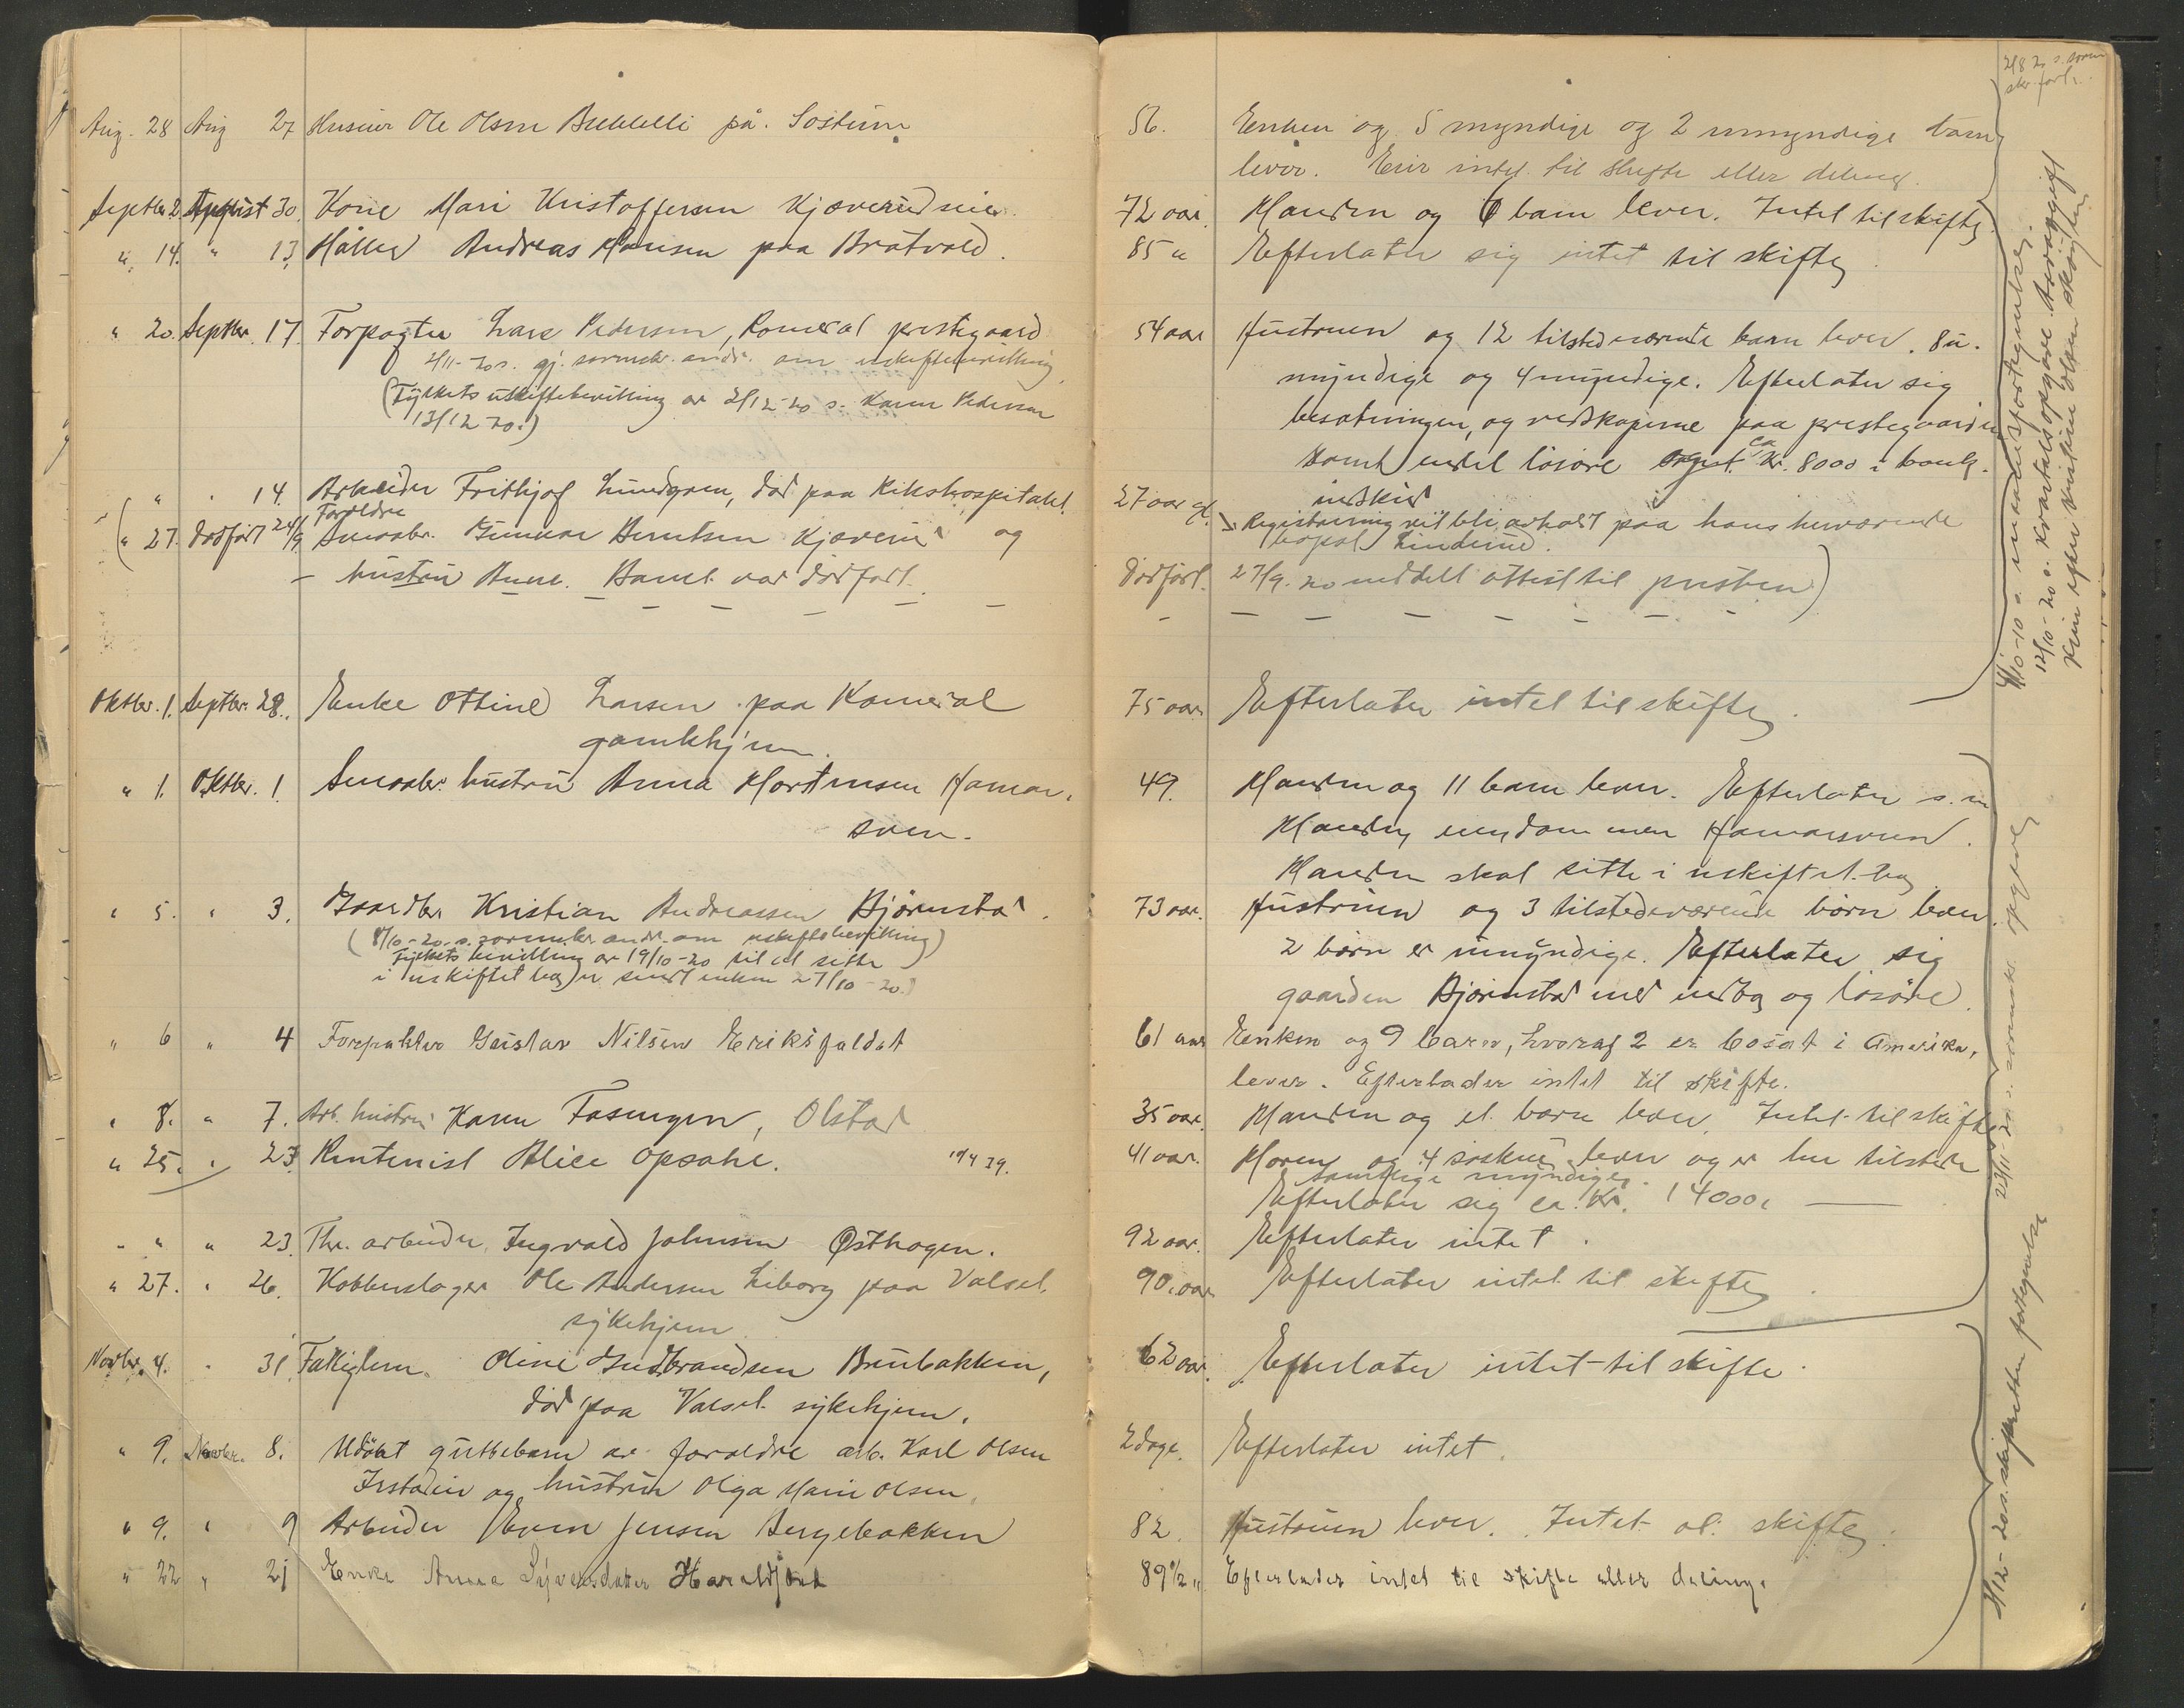 Aug. 28 Aug 27 Husmor Ole Olsen på. Sostuen
56. Enken og 5 myndige og 2 umyndige barn
lever. Eier intet til skifte eller deling.
Septbr. 2. August 30. Karie Mari Kristoffersen Kjæverudseier.
72 aar. Manden og 6 barn lever. Intet til skifte.
" 14. " 13. Andreas Hansen paa Bråtvold.
85 " Efterlater sig intet til skifte
" 20. Septbr. 17. Forpagter Lars Pedersen, Romedal prestegaard
2/11-20 s. gj. sorenskr. andr. om uskiftebevilling
(Fylkets uskiftebevilling av 2/12-20 s. Karen Pedersen
13/12 20.)
54 aar Hustruen og 12 tilstedeværende barn lever. 8 u-
myndige og 4 myndige. Efterlater sig
besætningen, og redskaperne paa prestegaarden
samt endel løsøre ca Kr. 8000 i bank-
indskud
" " 14. Arbeider Frithjof Lundgren, død paa Rikshospitalet.
27 aar gl. Registrering vil bli avholdt paa hans herværende
bopæl Linderud.
(" 27. Dødfødt 24/9 Forældre
Smaabr. Gunnar Berntsen Kjæverud og
hustru Anne. Barnet var dødfødt.
Dødfødt. 27/9. 20 meddelt attest til presten)
Oktbr. 1. Septbr. 28. Enke Ottine Larsen paa Romedal
gamlehjem.
75 aar Efterlater intet til skifte.
" 1. Oktbr. 1. Smaabr. hustru Anna Mortensen Hamar-
soen.
49. Manden og 11 barn lever. Efterlater s. m
Manden eiendommen Hamarsoen.
Manden skal sitte i uskiftet bo
" 5. " 3. Gaardbr. Kristian Andreassen Bjørnstad.
(8/10-20. s. sorenskr. andr. om uskiftebevilling)
Fylkets bevilling av 19/10-20 til at sitte
i uskiftet bo er sendt enken 27/10-20.)
73 aar. Hustruen og 3 tilstedeværende børn lever.
2 børn er umyndige. Efterlater sig
gaarden Bjørnstad med indbo og løsøre.
" 6 " 4 Forepakter Gustav Nilsen Eriksfaldet
61 aar Enken og 9 barn, hvoraf 2 er bosat i Amerika,
lever. Efterlader intet til skifte.
" 8. " 7. Arb. hustru Karen Fosengen, Olstad
35 aar. Manden og et barn lever. Intet til skifte
" 25. " 23. Rentenist Alice Opsahl. 19/4 39.
41 aar. Moren og 4 søsken lever og er her tilstede
samtlige myndige.
Efterlater sig ca. Kr. 14000,
" " 23. Thv. arbeider Ingvald Johnsen Østhagen.
92 aar. Efterlater intet.
" 27. " 26. Kobberslager Ole Andersen Liborg paa Valset.
sykehjem.
90. aar Efterlater intet til skifte.
Novbr. 4. " 31. Fattiglem. Oline Gudbrandsen Brubakken,
død paa Valset sykehjem.
62 aar. Efterlater intet til skifte.
" 9. Novbr. 8. Udøbt guttebarn av foreldre arb. Karl Olsen
Irstadeie og hustru Olga Marie Olsen.
2 dage. Efterlater intet.
" 9. " 9 Arbeider Even Jensen Bergebakken
82. Hustruen lever. Intet at skifte.
" 22 " 21 Enke Anna Syversdatter
89 1/2 " Efterlader intet til skifte eller deling.
2/8 20 s. soren
skr. fort.
4/10-10 s. maanedsfortegnelse.
12/10-20 s. kvartalsopgave arveavgift
kun efter Kristine Olsen
22/11 20 s. sorenskr. opgave
2/12-20 s. skifteretten fortegnelse